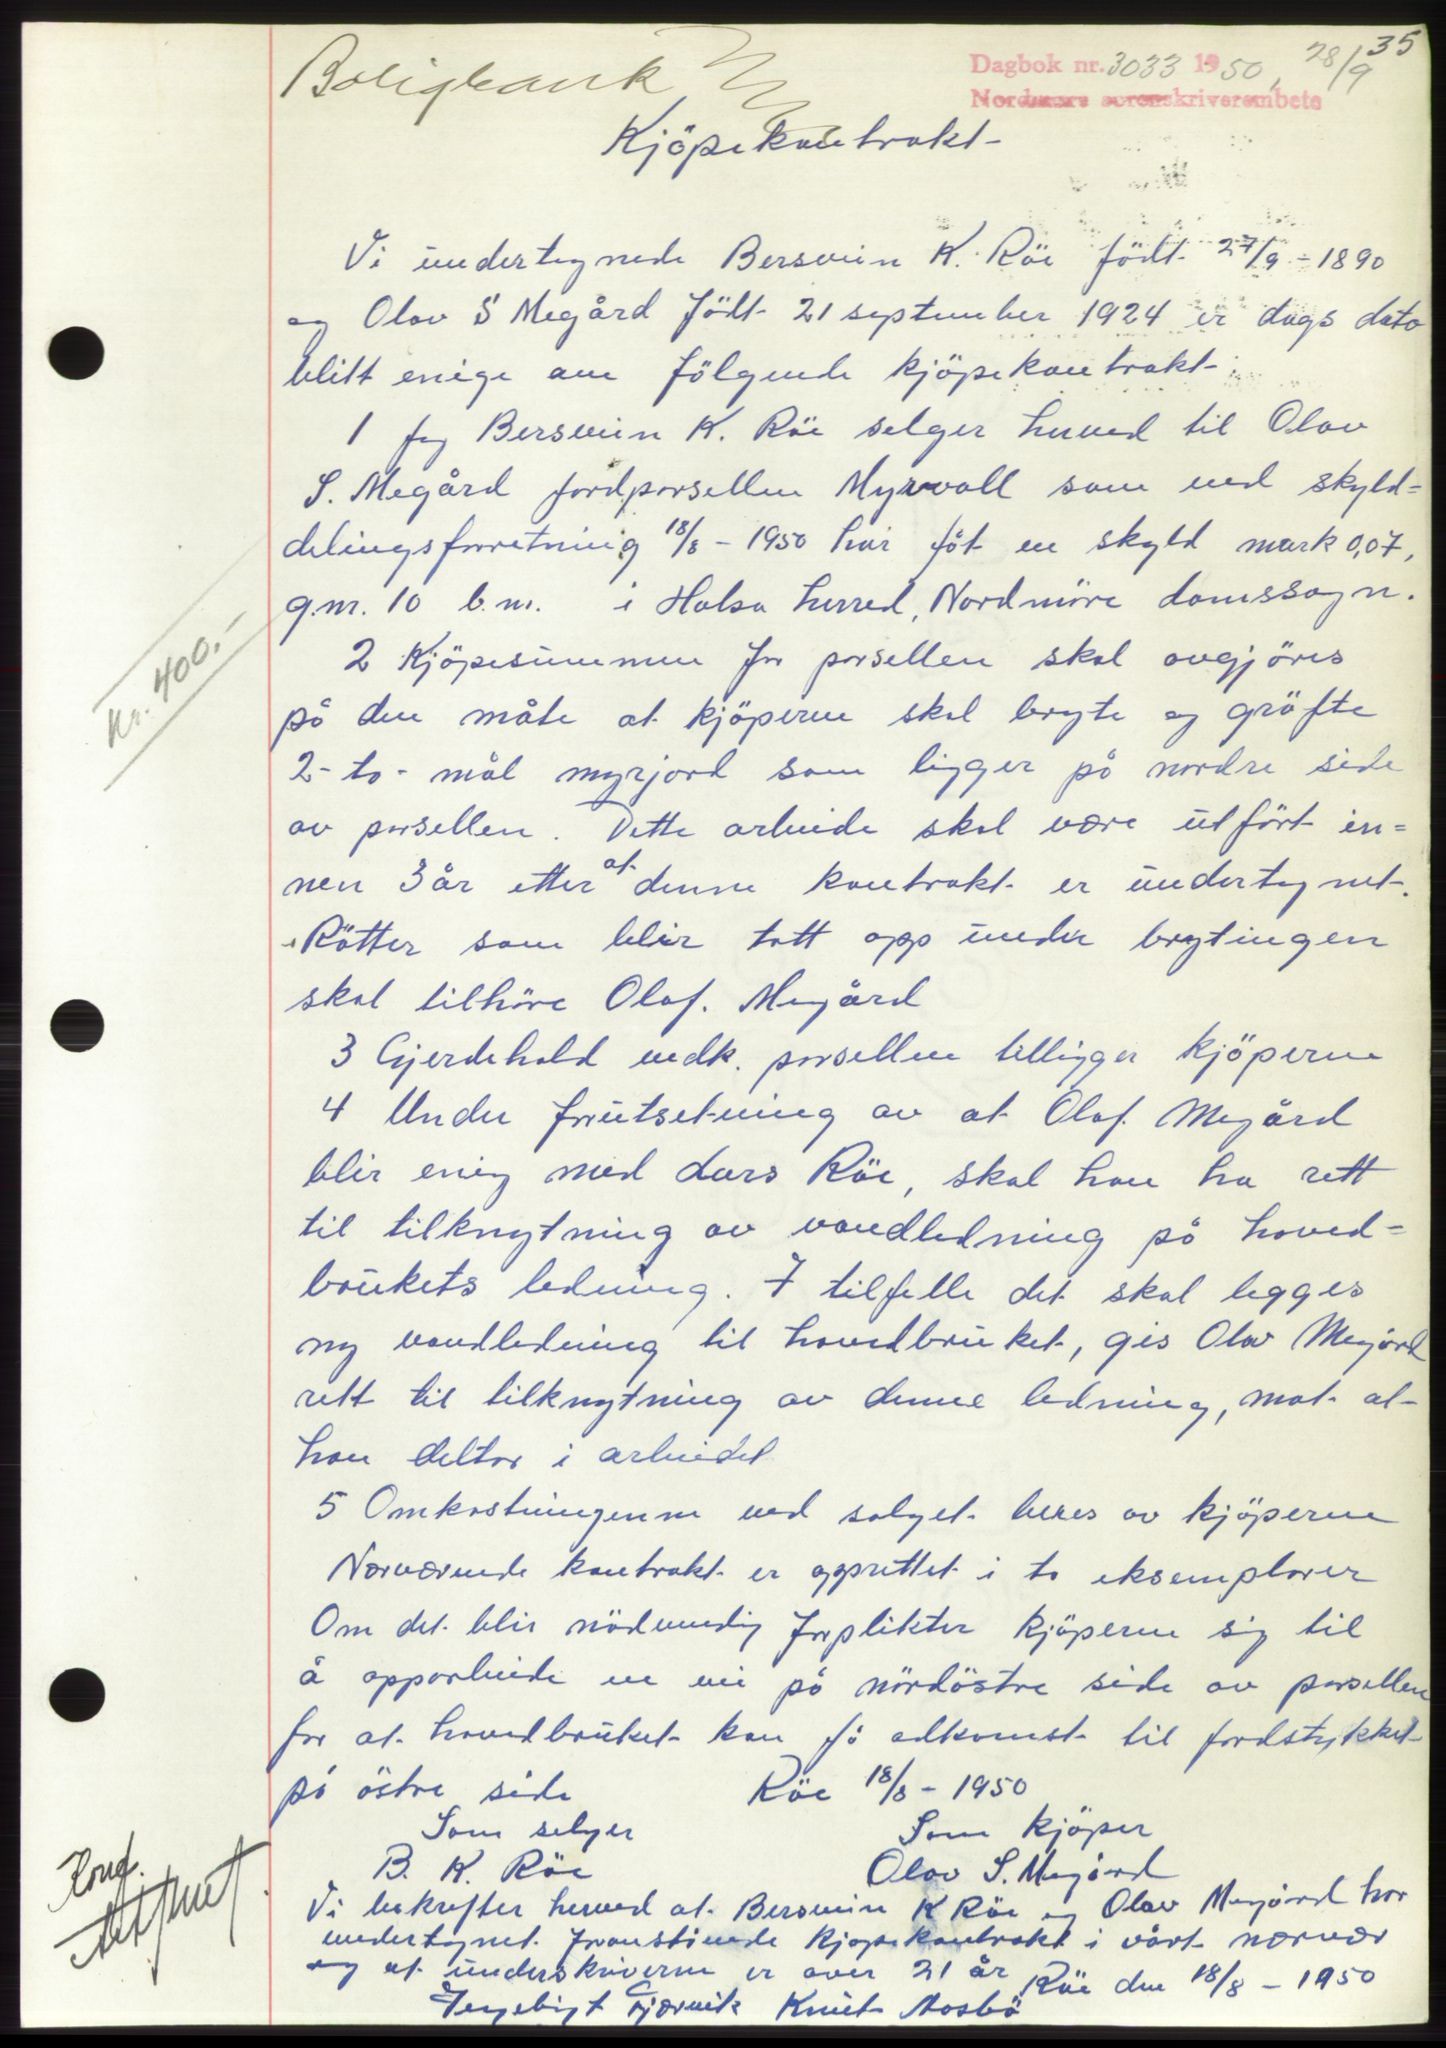 35
Boligbank
Dagbok nr. 3033 1950, 28/9
Nordmøre sorenskriverembete
Kjöpekontrakt-
Vi undertegnede Bersvein K. Röe födt 27/9 - 1890
og Olav S Megård födt 21 september 1924 er dags dato
blitt enige om fölgende kjöpekontrakt:
1 Jeg Bersvein K. Röe selger herved til Olav
S. Megård jordparsellen Myrvoll som ved skyld=
delingsforretning 18/8 - 1950 har fåt en skyld mark 0,07,
g.nr. 10 b.nr. i Halsa herred, Nordmöre domssogn.
2 Kjöpesummen for parsellen skal avgjöres
på den måte at kjöperen skal bryte og gröfte
2 - to - mål myrjord som ligger på nordre side
av parsellen. Dette arbeide skal være utfört in=
nen 3 år etter at denne kontrakt er undertegnet.
Rötter som blir tatt opp under brytingen
skal tilhöre Olaf. Megård
3 Gjerdehold vedk. parsellen tilligger kjöperen
4 Under forutsetning av at Olaf. Megård
blir enig med Lars Röe, skal han ha rett
til tilknytning av vandledning på hoved=
brukets ledning. I tilfelle det skal legges
ny vandledning til hovedbruket, gis Olav Megård
rett til tilknytning av denne ledning, mot at
han deltar i arbeidet
5 Omkostningene ved salget beres av kjöperen
Nærværende kontrakt er opprettet i to eksemplarer
Om det blir nödvendig forplikter kjöperen sig til
å opparbeide en vei på nördöstre side av parsellen
for at hovedbruket kan få adkomst til jordstykket
på östre side Röe 18/8 - 1950
Som selger Som kjöper
B. K. Röe Olav S. Megård
Vi bekrefter herved at Bersvein K Röe og Olav Megård har
undertegnet franstående kjöpekontrakt i vårt nærvær
og at underskriverne er over 21 år Röe den 18/8 - 1950
Ingebrigt Gjærvik Knut Mosbö
Kr. 400.-
Konf.